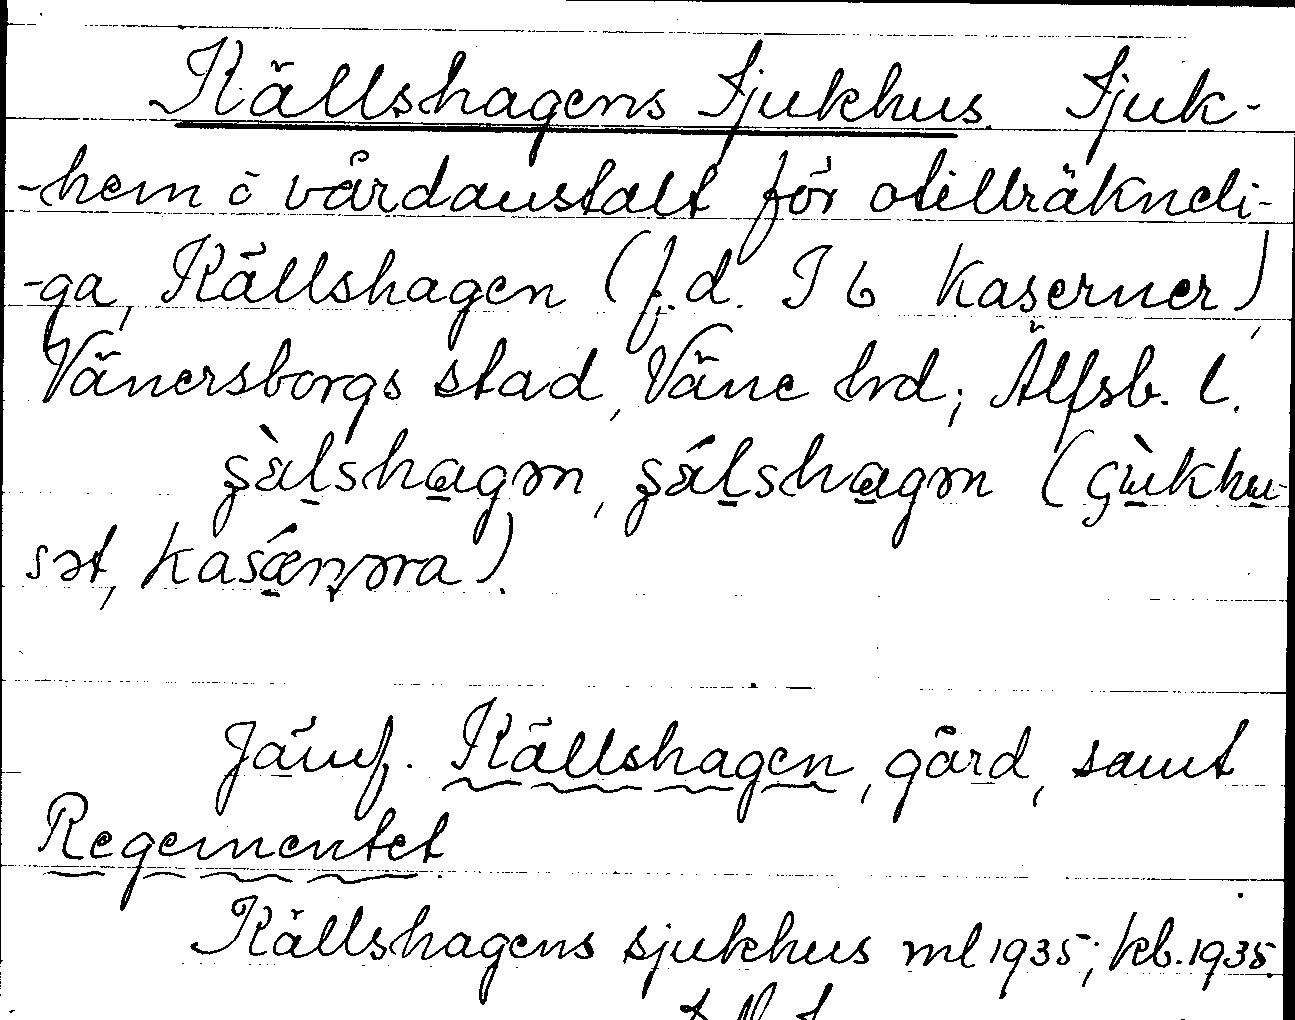 Källshagens Sjukhus. Sjuk-
-hem o vårdanstalt för otillräkneli-
-ga, Källshagen (f.d. I 6 Kaserner),
Vänersborgs stad, Väne hrd; Älfsb. l.
şàl̠shagən, şál̠shagən (çu̠̇kkhu-
sət, kasǽṇəra).
Jämf. Källshagen, gård, samt
Regementet.
Källshagens sjukhus ml 1935; kb. 1935.